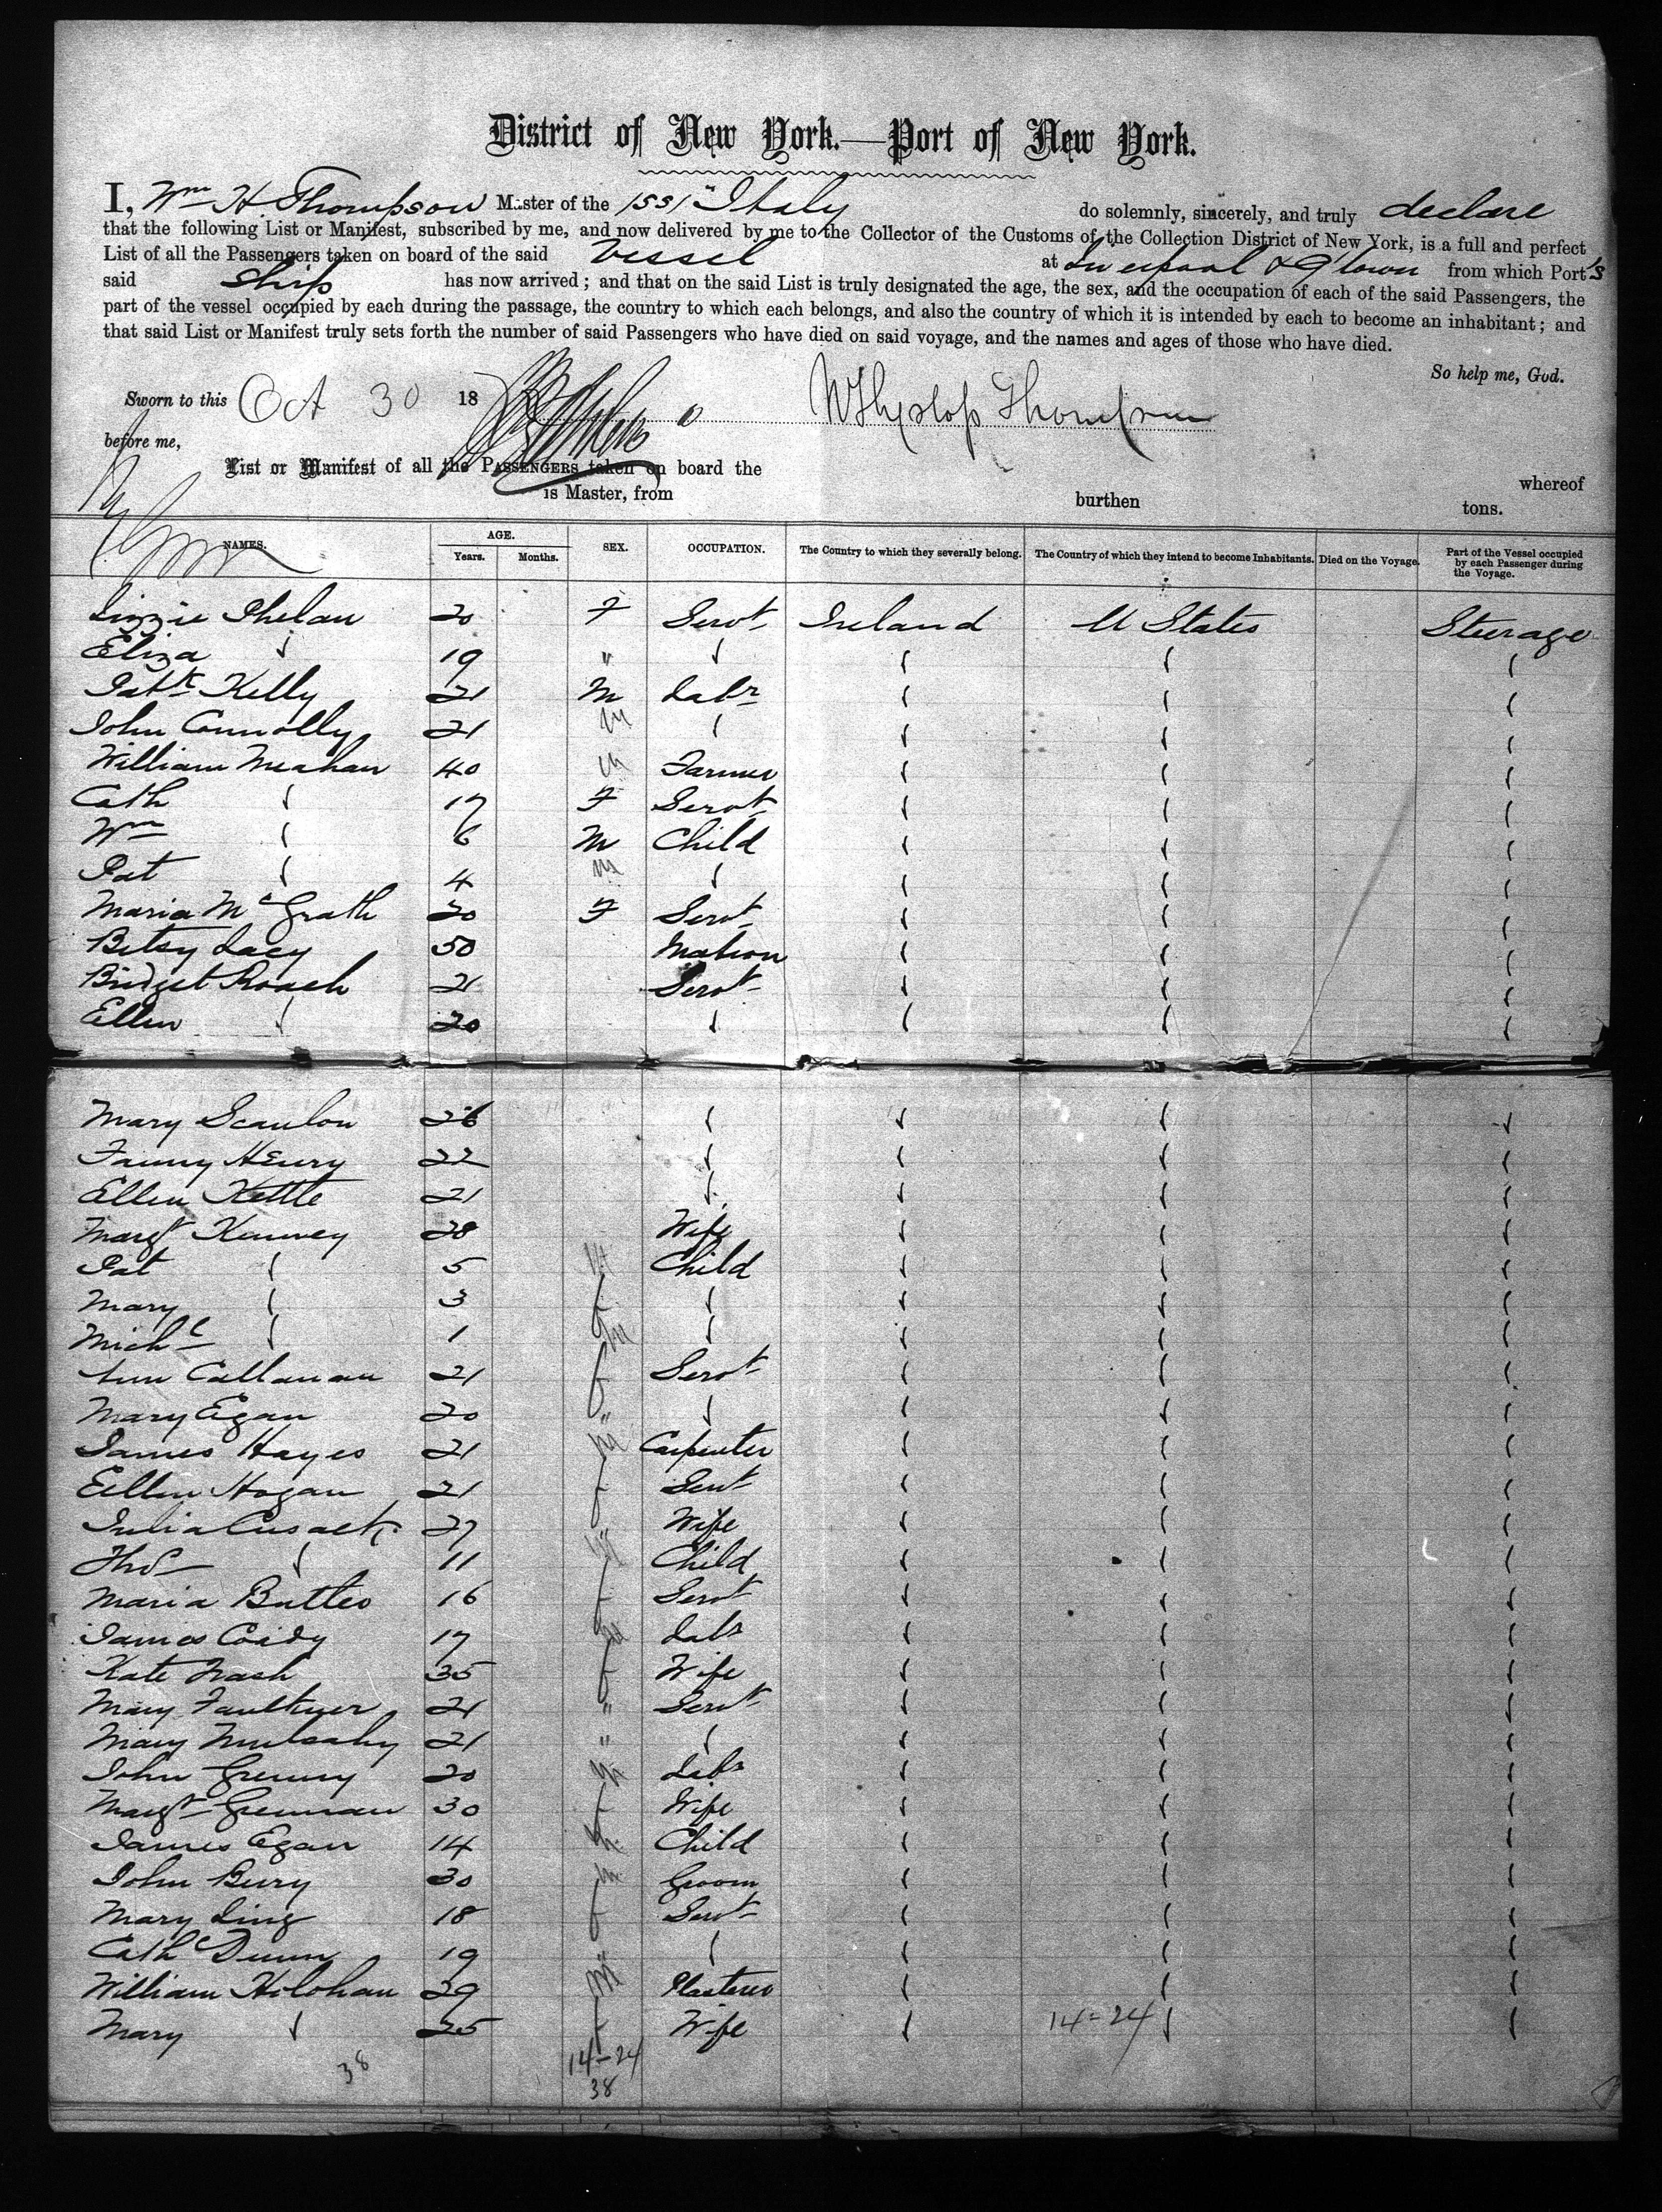 District of New York.—Port of New York.
I, Wm H. Thompson Master of the "Italy do solemnly, sincerely, and truly declare
that the following List or Manifest, subscribed by me, and now delivered by me to the Collector of the Customs of the Collection District of New York, is a full and perfect
List of all the Passengers taken on board of the said Vessel at Liverpool & Q'town from which Port's
said Ship has now arrived; and that on the said List is truly designated the age, the sex, and the occupation of each of the said Passengers, the
part of the vessel occupied by each during the passage, the country to which each belongs, and also the country of which it is intended by each to become an inhabitant; and
that said List or Manifest truly sets forth the number of said Passengers who have died on said voyage, and the names and ages of those who have died.
So help me, God.
Sworn to this Oct 30 18
W Hyslop Thompson
before me,
List or Manifest of all the PASSENGERS taken on board the whereof
is Master, from burthen tons.
NAMES. AGE. Years. Months. SEX. OCCUPATION. The Country to which they severally belong. The Country of which they intend to become Inhabitants. Died on the Voyage. Part of the Vessel occupied by each Passenger during the Voyage.
Lizzie Phelan 20 F Servt Ireland U States Steerage
Eliza 19 "
Patk Kelly 21 M Labr
John Connolly 21 M
William Meahan 40 M Farmer
Cath 17 F Servt
Wm 6 M Child
Pat 4 M
Maria McGrath 20 F Servt
Betsy Lacy 50 Matron
Bridget Roach 21 Servt
Ellen 20
Mary Scanlon 26
Fanny Henry 22
Ellen Kettle 21
Margt Kenney 28 Wife
Pat 5 M Child
Mary 3 f
Michl 1 M
Ann Callanan 21 f Servt
Mary Egan 20 "
James Hayes 21 M Carpenter
Ellen Hogan 21 f Servt
Julia Cusack 27 " Wife
Thos 11 M Child
Maria Butler 16 f Servt
James Coidy 17 M Labr
Kate Nash 35 f Wife
Mary Faulkner 21 " Servt
Mary Mulcahy 21 "
John Greeny 20 M Labr
Margt Grennan 30 f Wife
James Egan 14 M Child
John Bury 30 M Groom
Mary Ling 18 f Servt
Cath Dunn 19 "
William Holohan 29 M Plasterer
Mary 25 f Wife 14-24
38 14-24
38